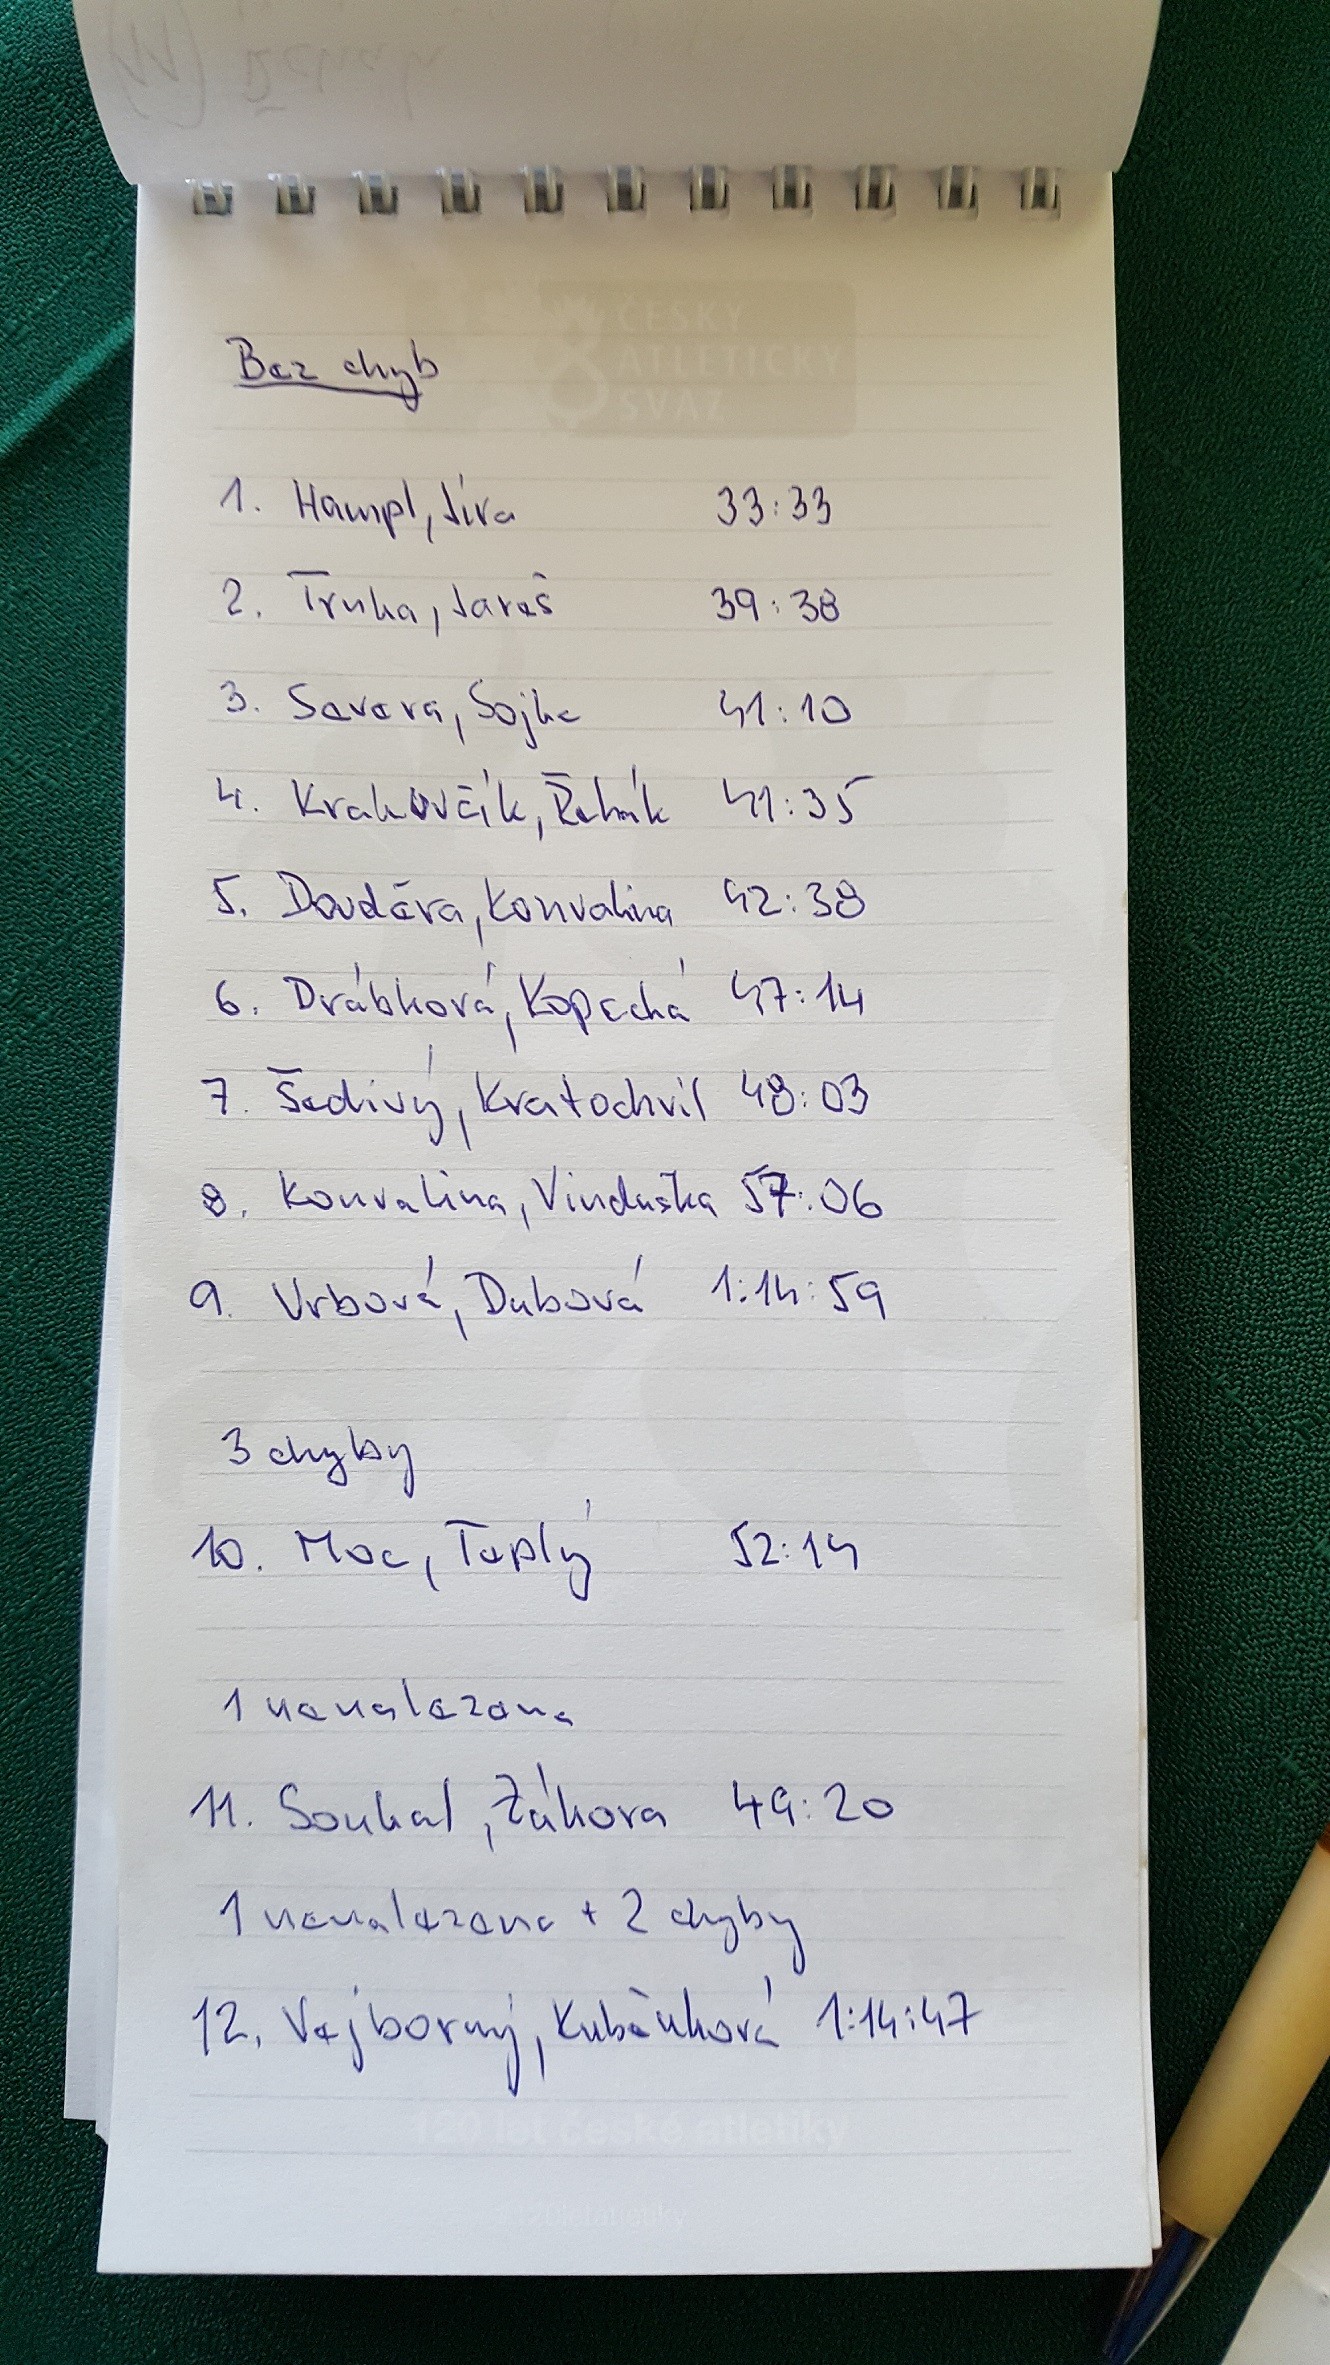 ČESKÝ
ATLETICKÝ
SVAZ
Bez chyb
1. Hampl, Jíra 33:33
2. Trnka, Jareš 39:38
3. Severa, Sojka 41:10
4. Krakovčík, Řehák 41:35
5. Douděra, Konvalina 42:38
6. Drábková, Kopecká 47:14
7. Šedivý, Kratochvíl 48:03
8. Konvalina, Vinduška 57:06
9. Vrbová, Dubová 1:14:59
3 chyby
10. Moc, Teplý 52:14
1 nenalezena
11. Soukal, Žákora 49:20
1 nenalezena + 2 chyby
12. Vejborný, Kuběnková 1:14:47
120 let české atletiky